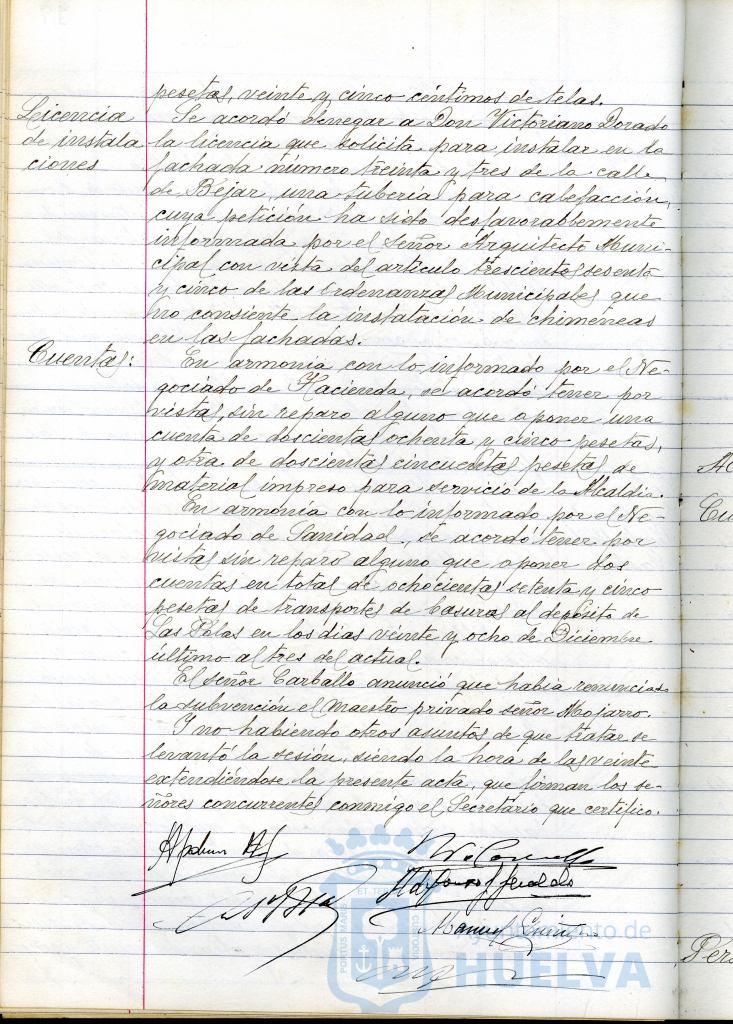 pesetas, veinte y cinco céntimos de telas.
Licencia
de instala
ciones
Se acordó denegar a Don Victoriano Dorado
la licencia que solicita para instalar en la
fachada número treinta y tres de la calle
de Béjar, una tubería para calefacción,
cuya petición ha sido desfavorablemente
informada por el señor Arquitecto Muni-
cipal con vista del artículo trescientos sesenta
y cinco de las Ordenanzas Municipales que
no consiente la instalación de chimeneas
en las fachadas.
Cuentas:
En armonia con lo informado por el Ne-
gociado de Hacienda, se acordó tener por
vistas, sin reparo alguno que oponer una
cuenta de doscientas ochenta y cinco pesetas,
y otra de doscientas cincuenta pesetas de
material impreso para servicio de la Alcaldia.
En armonia con lo informado por el Ne-
gociado de Sanidad, se acordó tener por
vistas sin reparo alguno que oponer dos
cuentas en total de ochocientas setenta y cinco
pesetas de transportes de basuras al depósito de
Las Polas en los dias veinte y ocho de Diciembre
último al tres del actual.
El señor Carballo anunció que habia renunciado
la subvención el maestro privado señor Mojarro.
Y no habiendo otros asuntos de que tratar se
levantó la sesión, siendo la hora de las veinte
extendiéndose la presente acta, que firman los se-
ñores concurrentes conmigo el Secretario que certifico.
Manuel
Ayuntamiento de
HUELVA